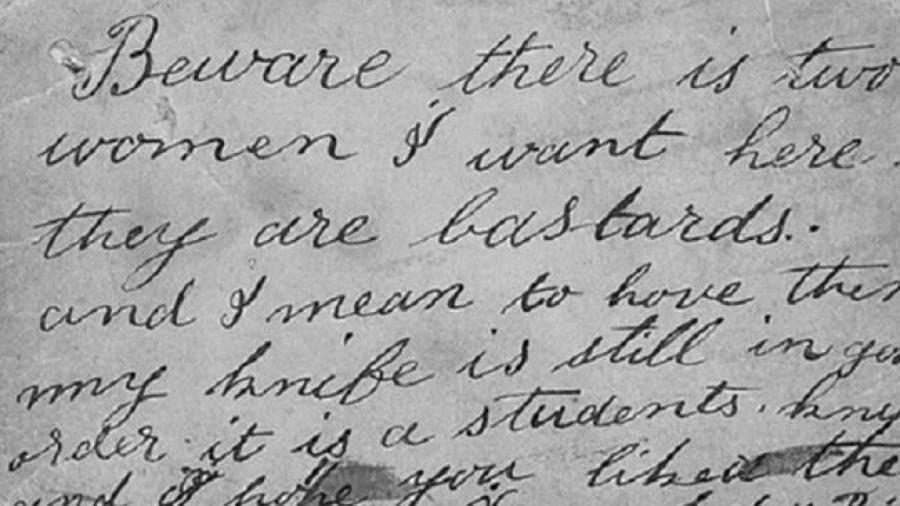 Beware there is two
women I want here.
they are bastards..
and I mean to have
my knife is still in
order it is a students.
and I hope you liked the